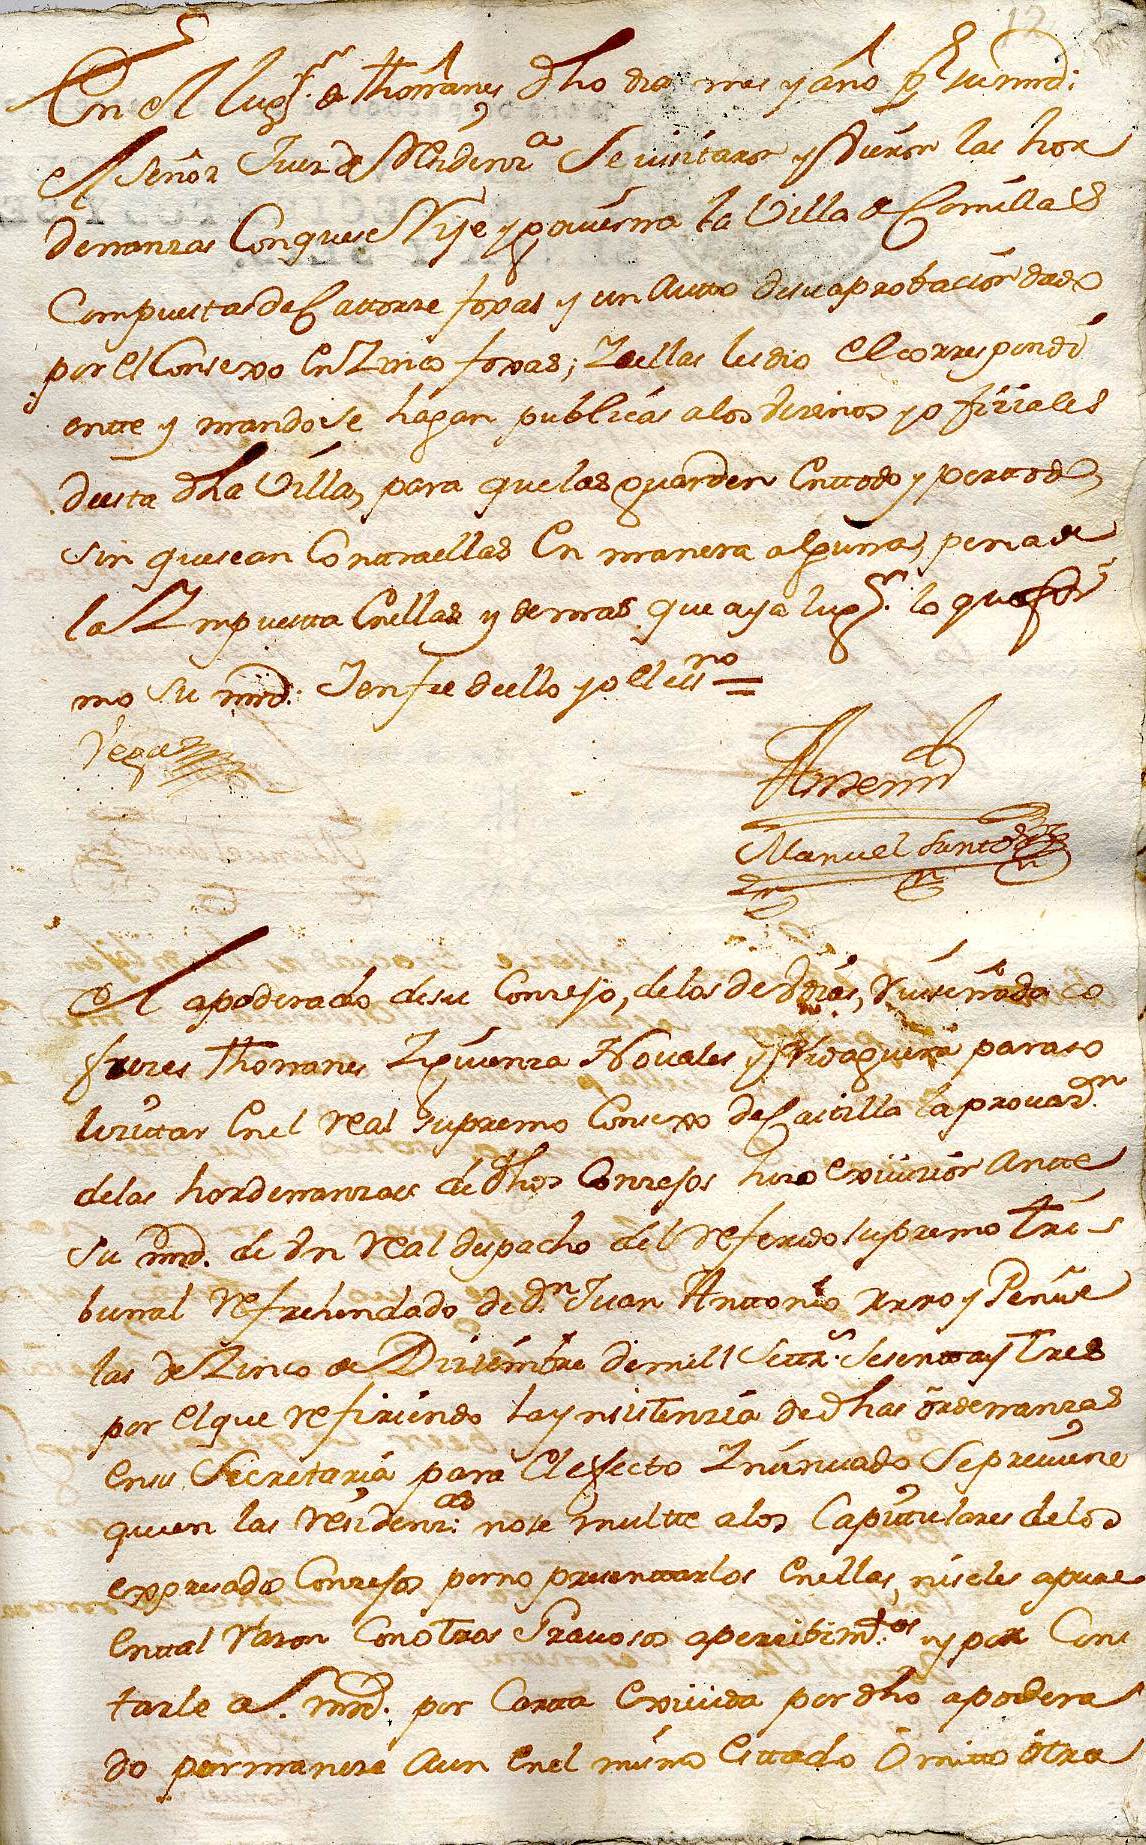 12
En el lugr. de Thomanes dho dia mes y año por su mrd:
el señor Juez de Residenza Se visitaron y vieron las hor
denanzas Conquese Rije y govierna la Villa de Comillas
Compuestas de Cattorze foxas y un Autto desu aprobacion dado
por el Consexo En Zinco foxas; Zaellas les dio el correspondi
ente y mando se hagan publicas alos vezinos y ofiziales
desta dha Villa, para quelas guarden Enttodo y porttodo,
sin quesean Contraellas En manera alguna, pena de
la Impuestta Enellas y demas que aya lugr. lo que fir
mo su mrd. Yenfee deello yo el essno =
Vega
Antemi
Manuel Santos
El apoderado desu Conzejo, delos de Udias, Ruiseñada Co
frezes Thomanes Ziguenza Novales y Ridaguera paraso
lizittar Enel real supremo Consexo de Castilla la provazn.
delas hordenanzas de dhos Conzejos hizo exivizion Antte
su mrd. de Un real despacho del referido supremo Tri-
bunal refrehendado de dn. Juan Anttonio rero y Peñue
las de Zinco de Diziembre demill Settzs. Sesenta y Tres
por el que refiriendo la ynsistenzia de dhas ordenanzas
ensu Secretaria para el efecto Ynsinuado Se previene
quien las residenzias nose multte alos Capittulares delos
expresados Conzejos porno presenttarlos Enellas, niseles apure
Enttal razon Conotros Gravosos aperzibimtos. y por Cons
tarle a S. mrd. por Cartta Exivida por dho apodera
do permaneze aun Enel mismo Esttado Omitto otra